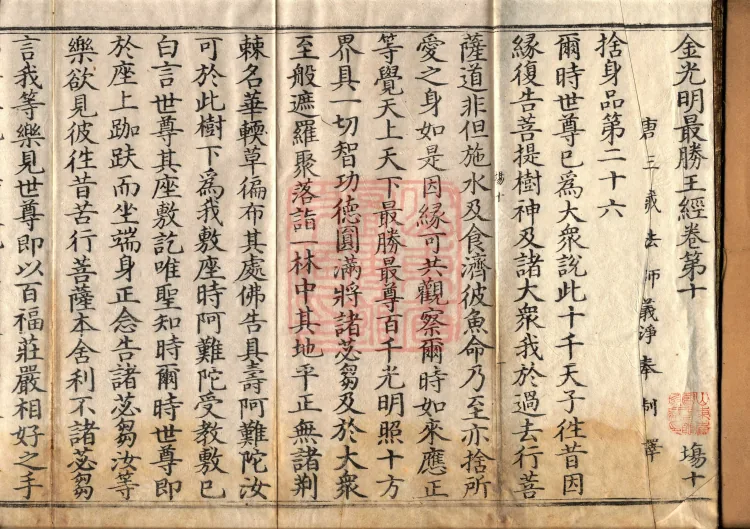 金光明最勝王經卷第十 場十
唐三藏法師義淨奉制譯
捨身品第二十六
爾時世尊已爲大衆說此十千天子徃昔因
緣復告菩提樹神及諸大衆我於過去行菩
場十
薩道非但施水及食濟彼魚命乃至亦捨所
愛之身如是因緣可共觀察爾時如來應正
等覺天上天下最勝最尊百千光明照十方
界具一切智功德圓滿將諸苾芻及於大衆
至般遮羅聚落詣一林中其地平正無諸荆
棘名華輭草徧布其處佛告具壽阿難陀汝
可於此樹下爲我敷座時阿難陀受教敷已
白言世尊其座敷訖唯聖知時爾時世尊即
於座上跏趺而坐端身正念告諸苾芻汝等
樂欲見彼徃昔苦行菩薩本舍利不諸苾芻
言我等樂見世尊即以百福莊嚴相好之手